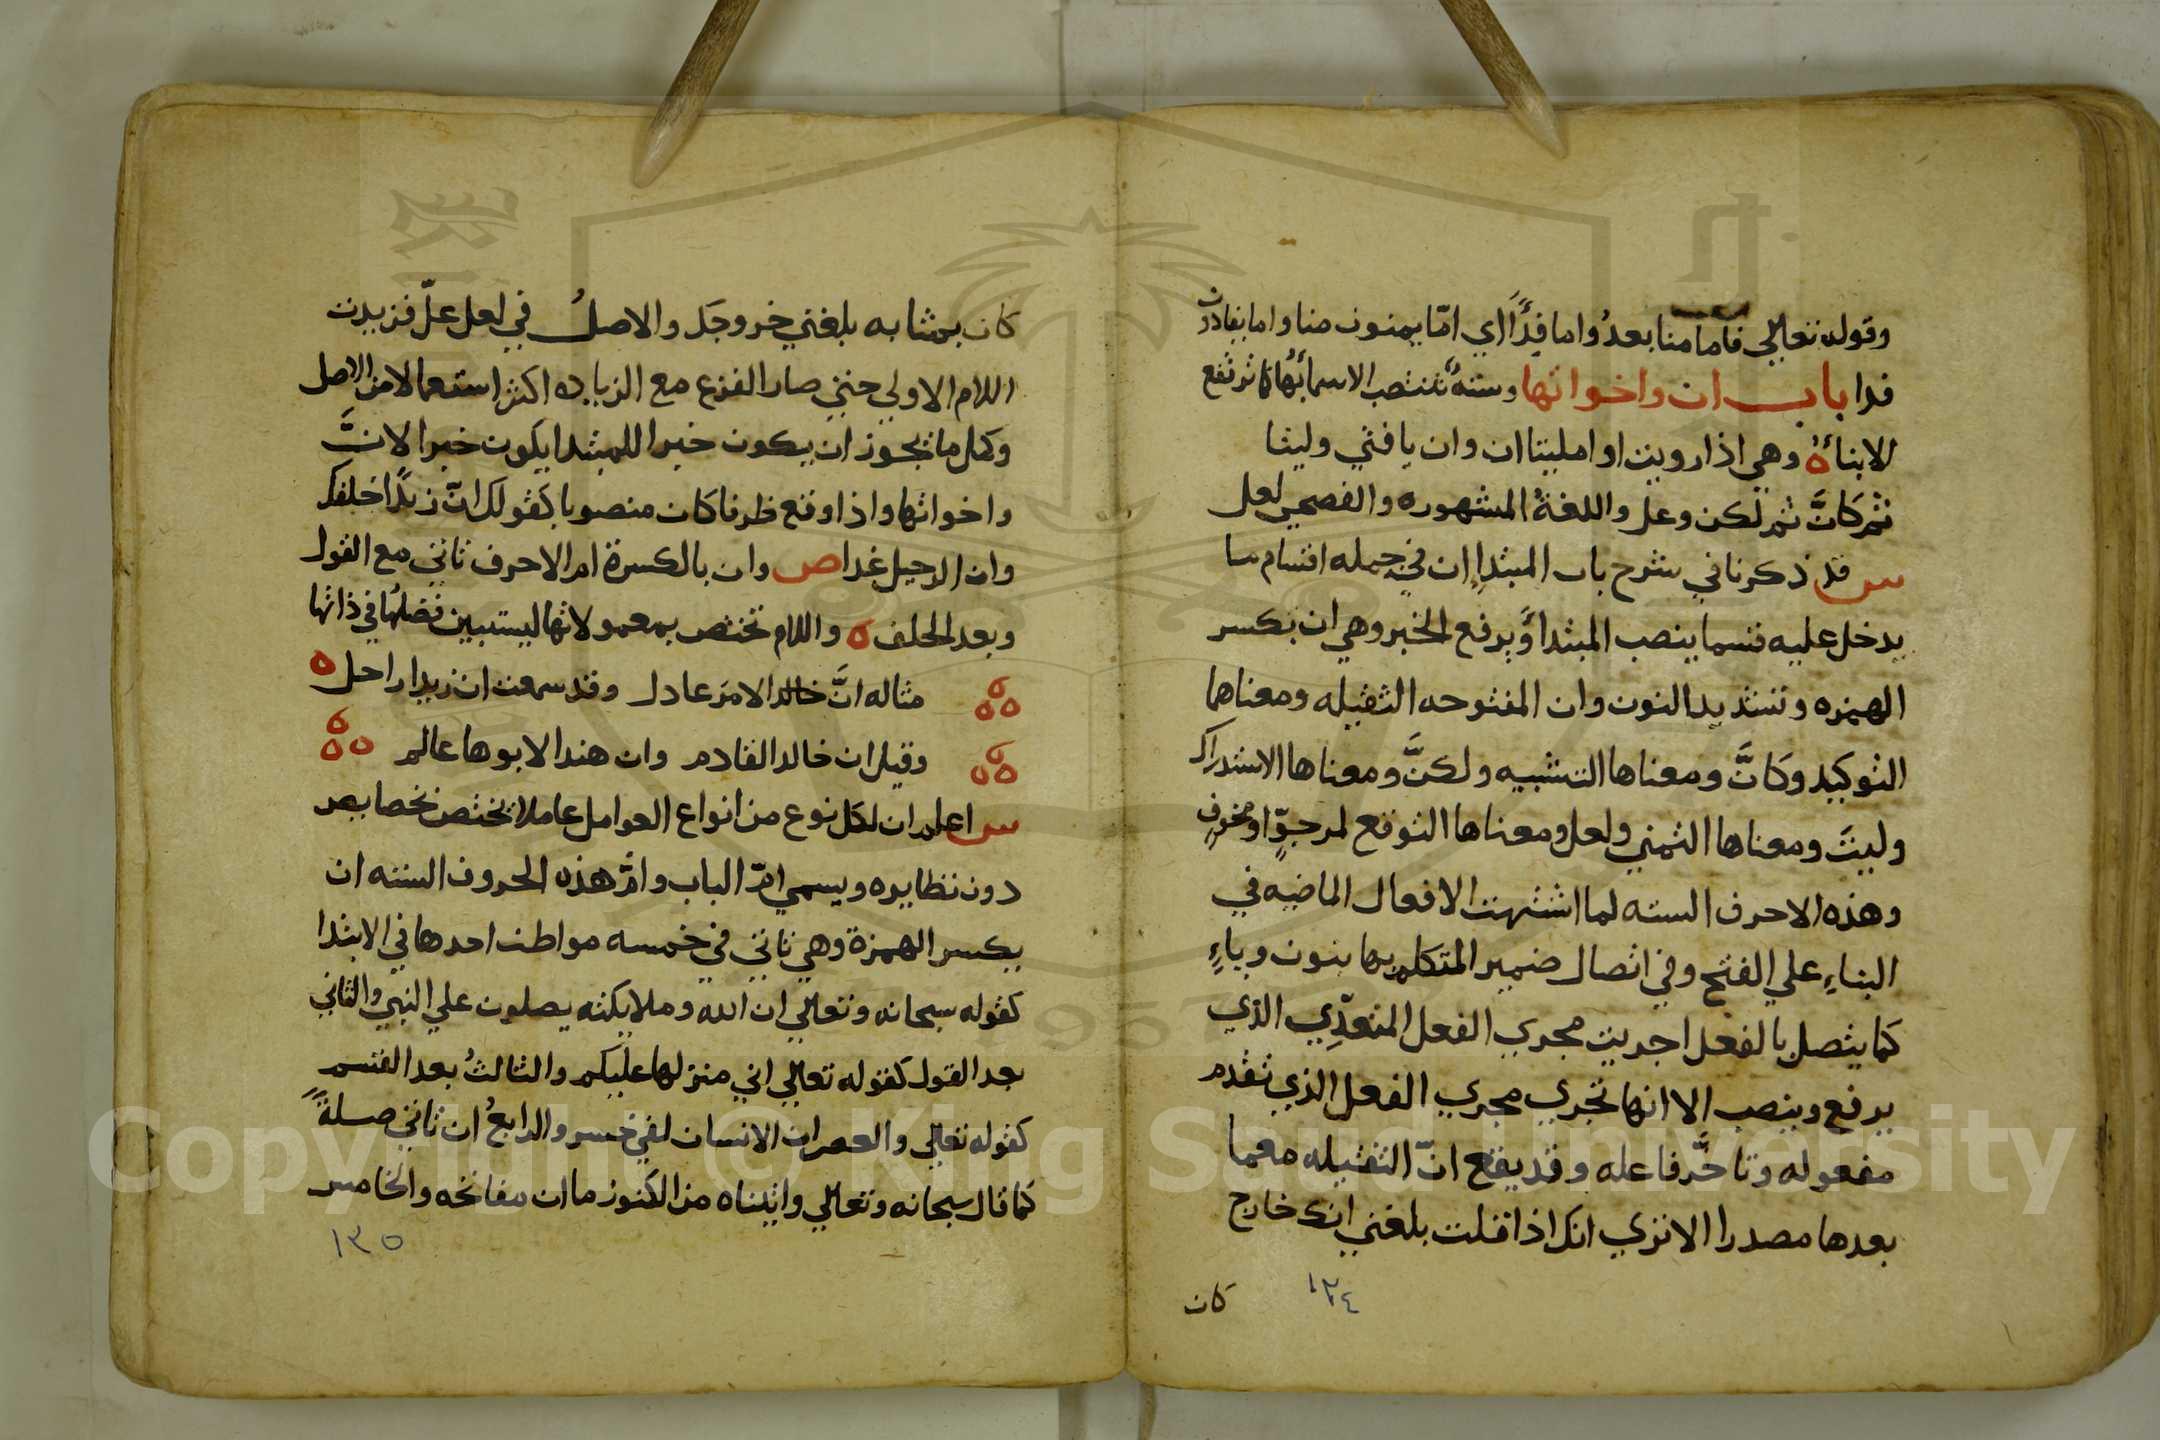 وقوله تعالي فاما منا بعدُ واما فِدًا اي امّا يمنون منا واما يفادون
فدا باب ان واخواتها وستةٌ تنتصب الاسمأُ بها كما ترتفع
الانبأُ ه وهي اذا رويت او امليتا ان وان يا فتي وليتا
ثم كانَّ ثم لكن وعل واللغةُ المشهوره والفصحي لعل
س قد ذكرنا في شرح باب المبتدإِ ان في جمله اقسام ما
يدخل عليه قسما ينصب المبتدا وَيرفع الخبر وهي ان بكسر
الهمزه وتشديد النون وان المفتوحه الثقيله ومعناهما
التوكيد وكانَّ ومعناها التشبيه ولكنَّ ومعناها الاستدراك
وليتَ ومعناها التمني ولعل ومعناها التوقع لمرجوٍّ او مخوفٍ
وهذه الاحرف السته لما اشبهت الافعال الماضيه في
البناءِ علي الفتح وفي اتصال ضمير المتكلم بها بنون وياءٍ
كما يتصل بالفعل اجريت مجري الفعل المتعدِّي الذي
يرفع وينصب الا انها تجري مجري الفعل الذي تقدم
مفعوله وتاخَّر فاعله وقد يقع انّ الثقيله معما
بعدها مصدرا الا تري انك اذا قلت بلغني انك خارج
كان
١٣٤
كان بمثابه بلغني خروجَك والاصلُ في لعل علّ فزيدت
اللام الاولي حتي صار الفرع مع الزياده اكثر استعمالا من الاصل
وكل ما يجوز ان يكون خبرا للمبتدا يكون خبرا لانَّ
واخواتها واذا وقع ظرفا كان منصوبا كقولك انّ زيدًا خلفك
وان الرحيل غدا ص وان بالكسرة ام الاحرف تاتي مع القول
وبعد الحلف ه واللام تختص بمعمولاتها ليستبين فضلها في ذاتها
مثاله انَّ خالد الامرَ عادل وقد سمعت ان زيدا راحل ه
وقيل ان خالدا لقادم وان هندا لابوها عالم
س اعلم ان لكل نوع من انواع العوامل عاملا يختص بخصايص
دون نظايره ويسمي امّ الباب وامُّ هذه الحروف السته ان
بكسر الهمزة وهي تاتي في خمسه مواطن احدها في الابتدا
كقوله سبحانه وتعالي ان الله وملايكته يصلون علي النبي والثاني
بعد القول كقوله تعالي اني منزلها عليكم والثالثُ بعد القسم
كقوله تعالي والعصر ان الانسان لفي خسر والرابعُ ان تاتي صلةً
كما قال سبحانه وتعالي واتيناه من الكنوز ما ان مفاتحه والخامس
١٣٥
Copyright © King Saud University
1957